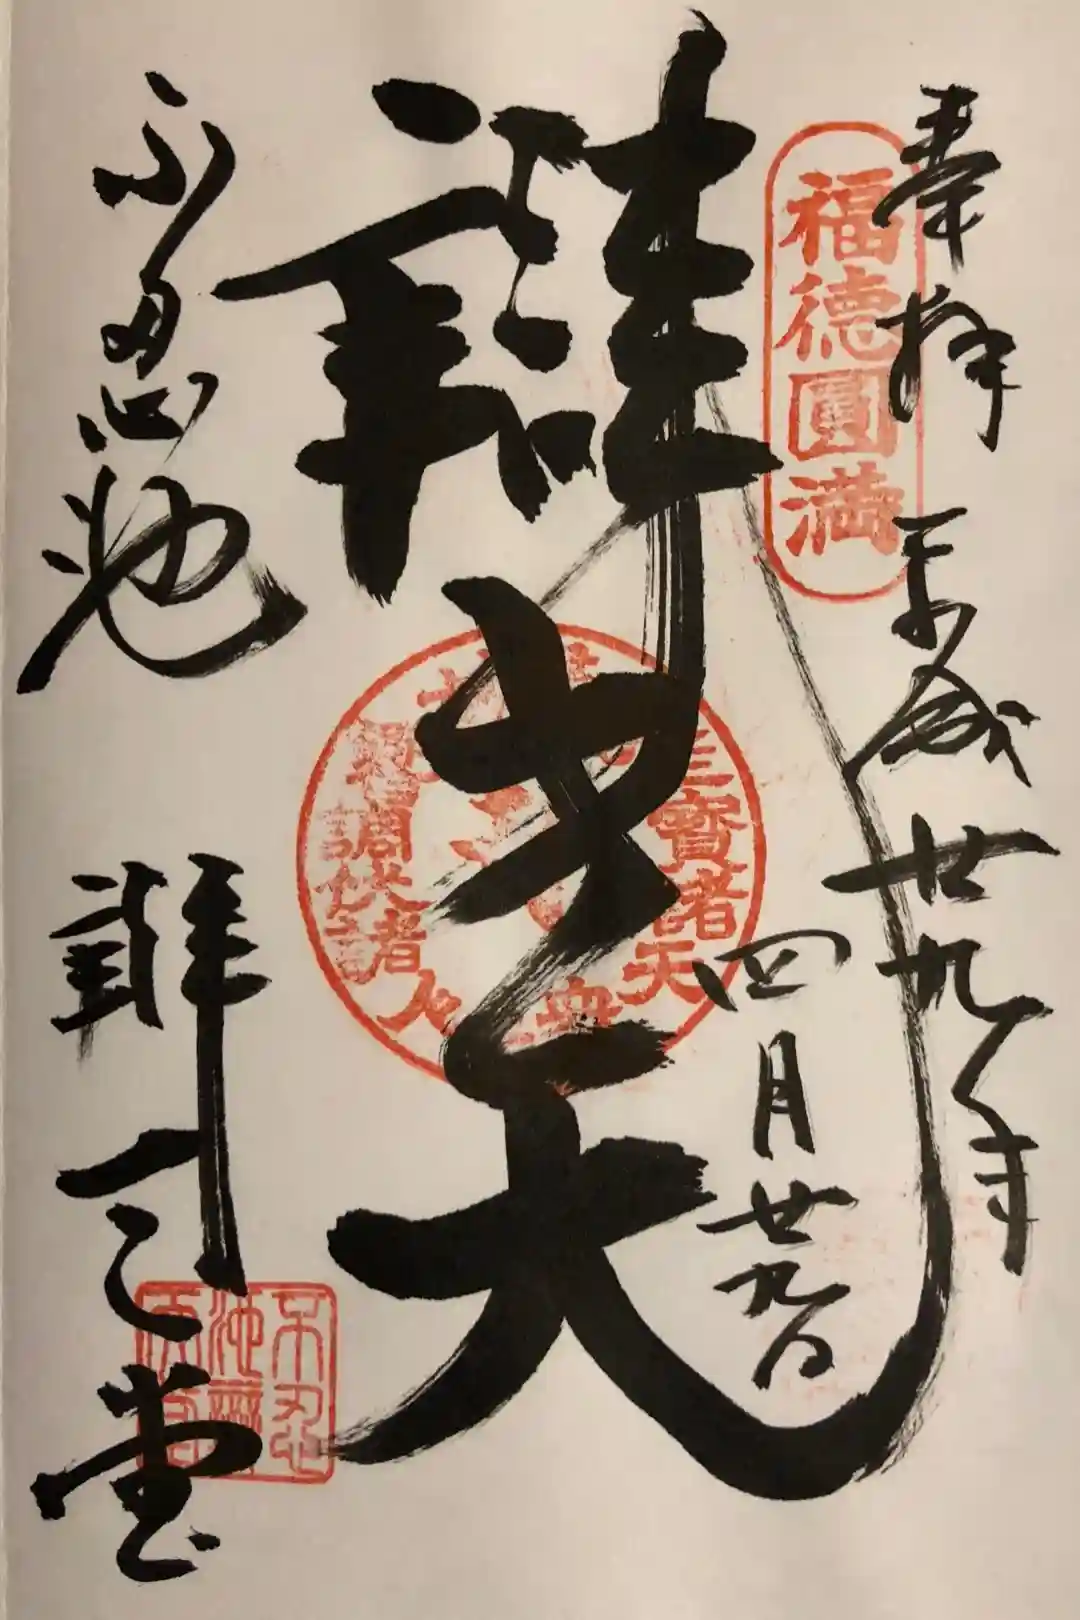 奉拝
平成廿九年
四月廿九日
福徳圓満
辯才天
三寶諸天
不忍池
辯天堂
不忍
池辯